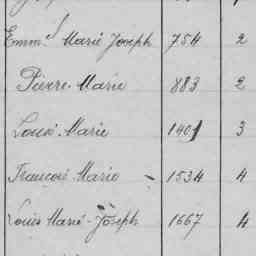 Emm.l Marie Joseph 754 2
Pierre Marie 883 2
Louis Marie 1401 3
François Marie 1534 4
Louis Marie-Joseph 1667 4